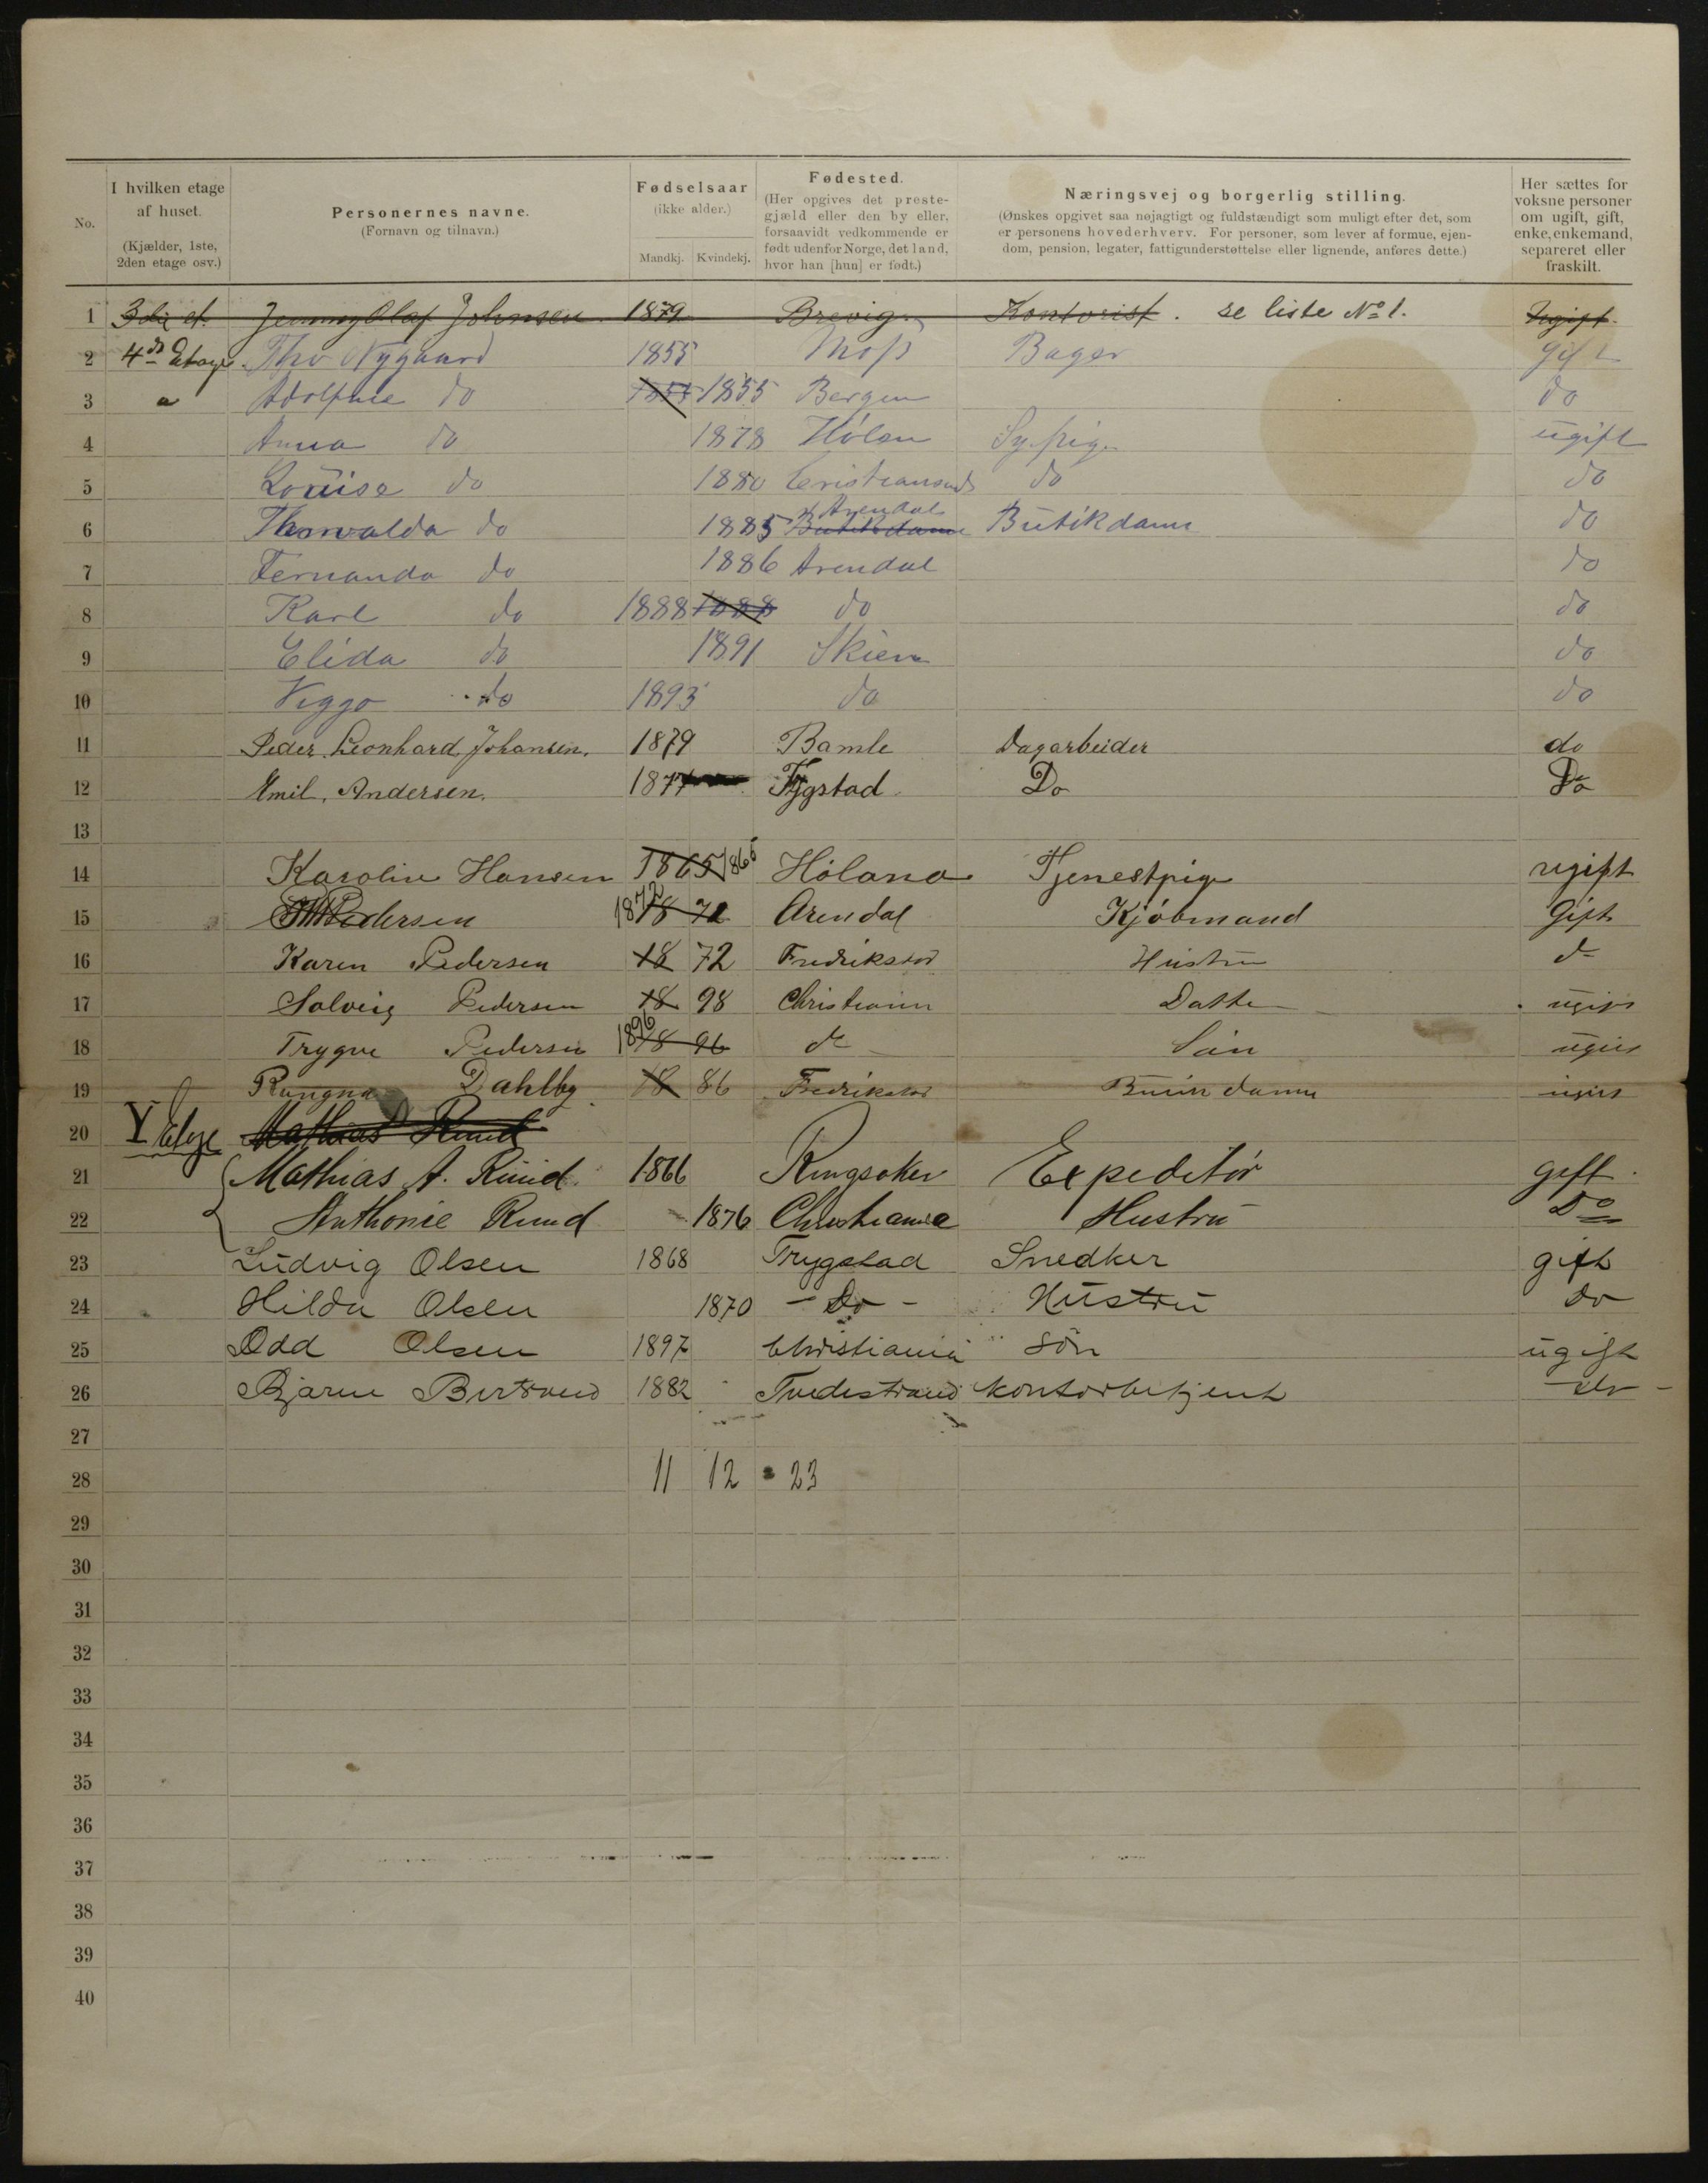 No.
I hvilken etage af huset.
(Kjælder, 1ste, 2den etage osv.)
Personernes navne.
(Fornavn og tilnavn.)
Fødselsaar
(ikke alder.)
Mandkj. Kvindekj.
Fødested.
(Her opgives det prestegjæld eller den by eller, forsaavidt vedkommende er født udenfor Norge, det land, hvor han [hun] er født.)
Næringsvej og borgerlig stilling.
(Ønskes opgivet saa nøjagtigt og fuldstændigt som muligt efter det, som er personens hovederhverv. For personer, som lever af formue, ejendom, pension, legater, fattigunderstøttelse eller lignende, anføres dette.)
Her sættes for voksne personer om ugift, gift, enke, enkemand, separeret eller fraskilt.
1 3die et. Jenny Olaf Johnsen 1879 Brevig Kontorist. se liste No 1. Ugift
2 4de Etage Tho Nygaard 1855 Moss Bager Gift
3 Adolphie do 1855 1855 Bergen do
4 Anna do 1878 Hölen Sypige ugift
5 Louise do 1880 Cristiansand do do
6 Thorvalda do 1885 Butikdame Arendal Butikdame do
7 Fernanda do 1886 Arendal do
8 Karl do 1888 1888 do do
9 Elida do 1891 Skien do
10 Viggo do 1893 do do
11 Peder Leonhard Johansen. 1879 Bamle Dagarbeider do
12 Emil. Andersen. 1877 Do Do
13
14 Karolin Hansen 1865 1865 Höland Tjenestpige ugift
15 Pedersen 1872 18 72 Arendal Kjöbmand Gift
16 Karen Pedersen 18 72 Fredrikstad Hustru do
17 Solveig Pedersen 18 98 Christiania Datter ugift
18 Trygve Pedersen 1896 18 96 do Sön ugift
19 Rangna Dahlby 18 86 Fredrikstad Butik dame ugift
20 V Etage Mathias Ruud
21 Mathias A. Ruud. 1866 Ringsaker Expeditör gift.
22 Anthonie Ruud 1876 Christiania Hustru Do
23 Ludvig Olsen 1868 Trygstad Snedker gift
24 Hilda Olsen 1870 - Do - Hustru Do
25 Odd Olsen 1897 Christiania sön ugift
26 Bjarne Bertrand 1882 Tvedestrand kontorbetjent - do -
27
28 11 12 = 23
29
30
31
32
33
34
35
36
37
38
39
40